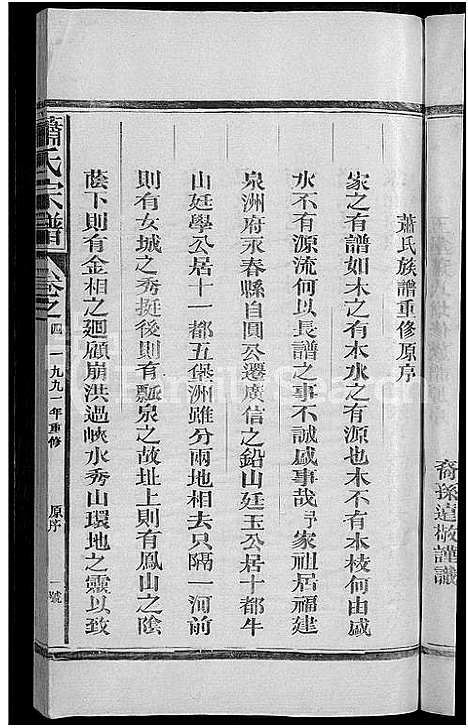 裔孫達敬謹識
蕭氏族譜重修原序
家之有譜如木之有本水之有源也木不有本枝何由盛
水不有源流何以長譜之事不誠盛事哉予家祖居福建
泉洲府永春縣自圓公遷廣信之鉛山廷玉公居十都牛
山廷學公居十一都五堡洲雖分兩地相去只隔一河前
則有女城之秀挺後則有瓢泉之故址上則有鳳山之陰
蔭下則有金相之廻顧崩洪過峽水秀山環地之靈以致
蕭氏宗譜 卷之四 一九九一年重修 原序 一號
FamilySearch